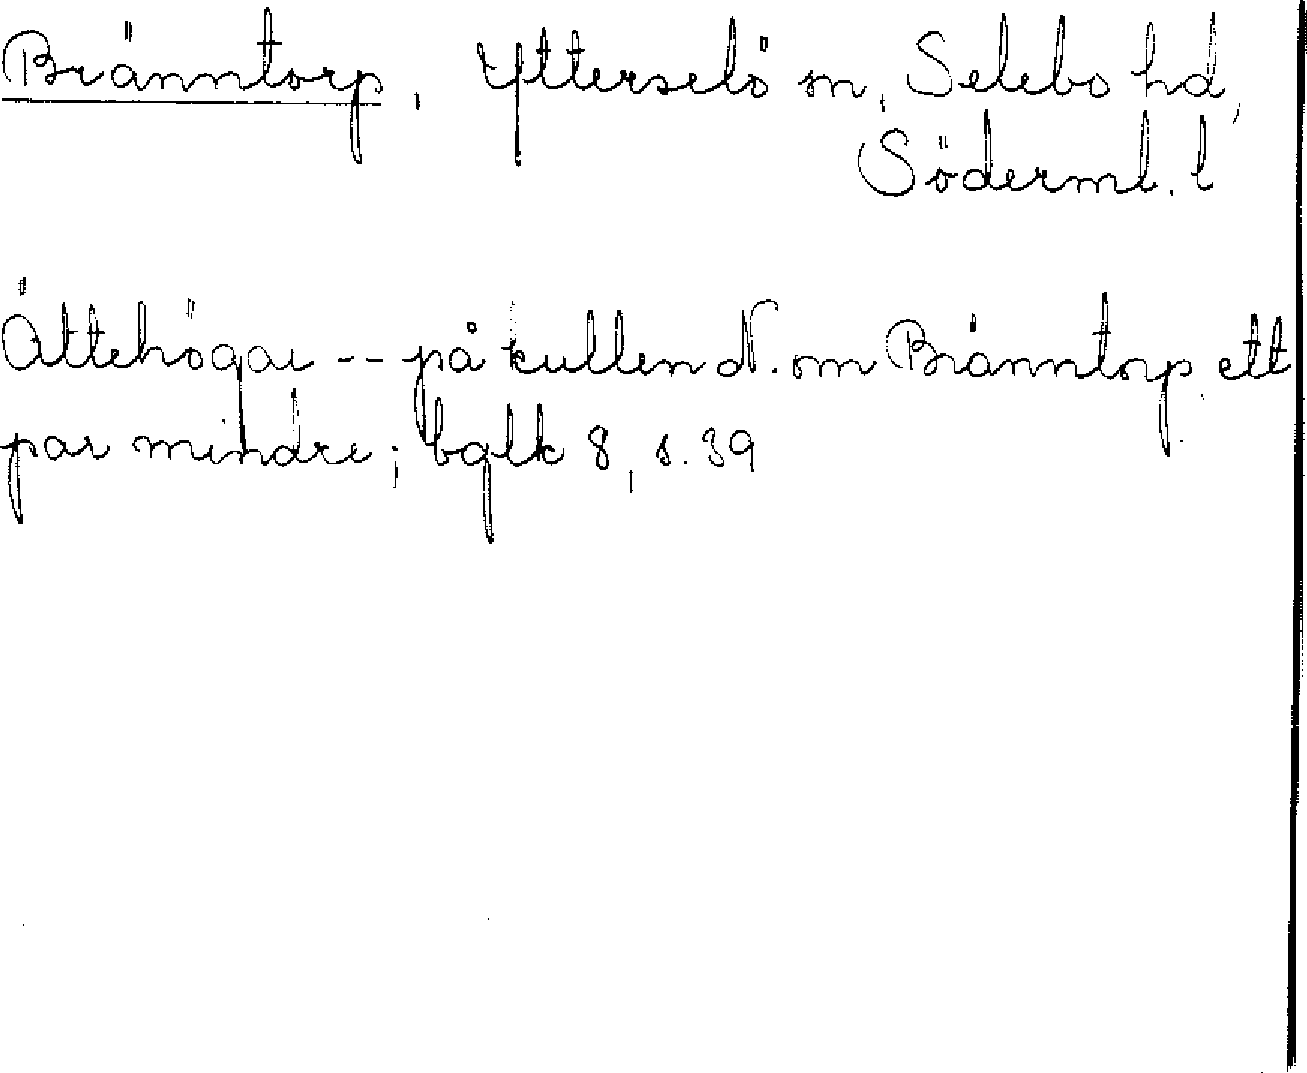 Bränntorp, Ytterselö sn, Selebo hd,
Söderml. l
Ättehögar -- på kullen N. om Bränntorp ett
par mindre; bglk 8, s. 39